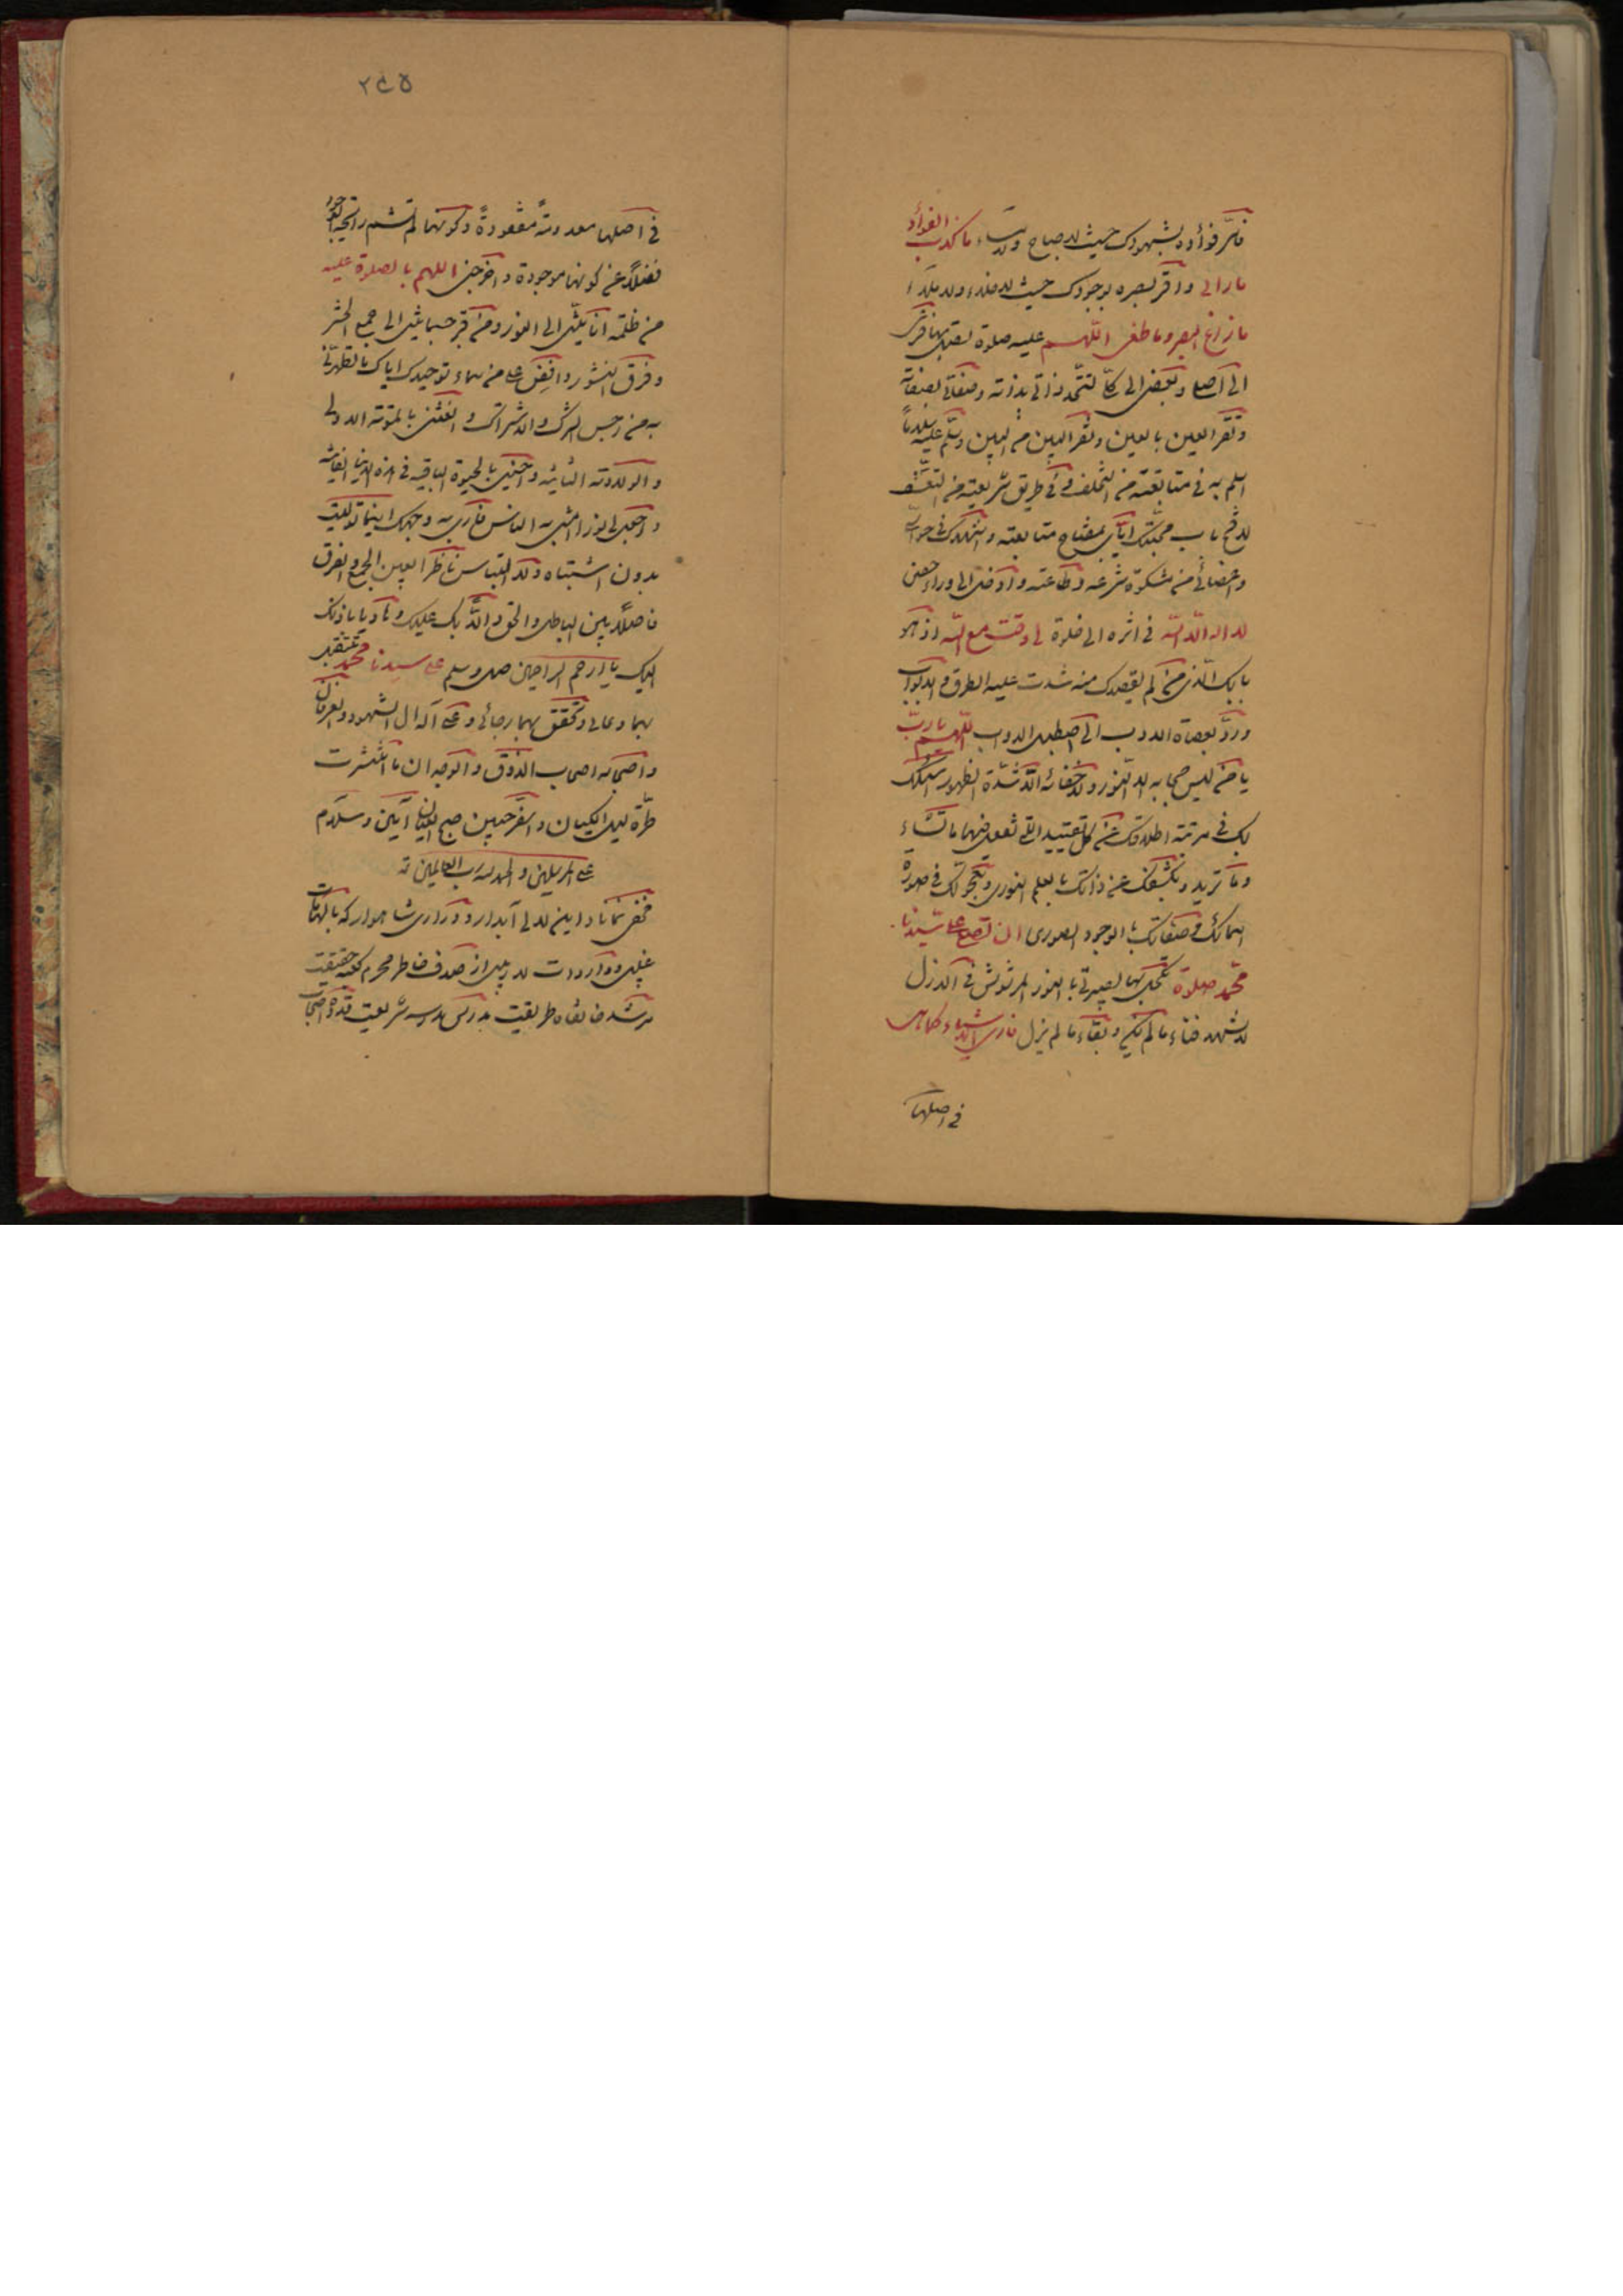 فاسرّ فؤاده بشهودك حيث لا صباح ولا مساء ما كذب الفؤاد
ما رأى واقرّ بصره بوجودك حيث لا خلاء ولا ملاء
ما زاغ البصر وما طغى اللّهم صل عليه صلوة يصل بها فرعي
الى اصلي وبعضي الى كلّي لتتّحد ذاتي بذاته وصفاتي بصفاته
وتقرّ العين بالعين ويفرّ البين من البين وسلّم عليه سلاماً
اسلم به في متابعته من التخلّف وفي طريق شريعته من التعسّف
لافتح باب محبّتك ايّاي بمفتاح متابعته واشهدك في حواسّي
واعضائي من مشكوة شرعه وطاعته وادخل الى وراء حصن
لا اله الّا الله في اثره الى خلوة لي وقت مع الله اذ هو
بابك الّذي من لم يقصدك منه سدّت عليه الطرق والابواب
وردّ بعصاء الادب الى اصطبل الدواب اللّهم يا ربّ
يا من ليس حجابه الا النور ولا خفائه الّا شدّة الظهور اسئلك
بك في مرتبة اطلاقك عن كلّ تقييد التي تفعل فيها ما تشاء
وما تريد وبكشفك عن ذاتك بالعلم النوري وتحوّلك في صورة
اسمائك وصفاتك بالوجود الصوري ان تصلّي على سيّدنا
محمّد صلوة تكحل بها بصيرتي بالنور المرشوش في الازل
لاشهد فناء ما لم يكن وبقاء ما لم يزل وارى الاشياء كما هي
في اصلها
٢٤٥
في اصلها معدومةً مفقودةً وكونها لم تشم رائحة الوجود
فضلاً عن كونها موجودة واخرجني اللهم بالصلوة عليه
من ظلمة انانيّتي الى النور ومن قبر جسمانيّتي الى جمع الحشر
وفرق النشور وافض عليّ من سماء توحيدك ايّاك ما تطهرني
به من رجس الشرك والاشراك وانعشني بالموتة الاولى
والولادة الثانية واحيني بالحيوة الباقية في هذه الدنيا الفانية
واجعل لي نوراً امشي به في الناس فارى به وجهك اينما تولّيت
بدون اشتباه ولا التباس ناظراً بعين الجمع والفرق
فاصلاً بين الباطل والحق دالّاً بك عليك وهادياً باذنك
اليك يا ارحم الراحمين صل وسلم على سيدنا محمّد صلوة تتقبل
بها دعائي وتحقق بها رجائي وعلى آله آل الشهود والعرفان
واصحابه اصحاب الذوق والوجدان ما انتشرت
طرّة ليل الكيان واسفر جبين صبح العيان آمين وسلام
على المرسلين والحمد لله رب العالمين
مخفی نماناد اين لآلی آبدار ودراری شاهوار كه بالهامات
غيبی وواردات لاريبی از صدف خاطر محرم كعبه حقيقت
مرشد خانقاه طريقت مدرّس مدرسه شريعت قدوه اصحاب